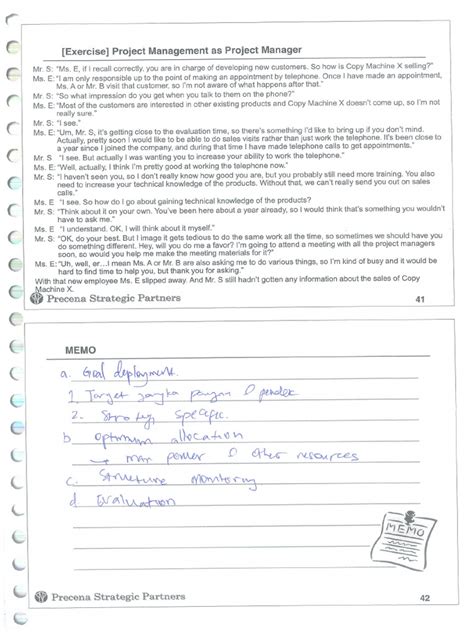 [Exercise] Project Management as Project Manager
Mr. S: "Ms. E, if I recall correctly, you are in charge of developing new customers. So how is Copy Machine X selling?"
Ms. E: "I am only responsible up to the point of making an appointment by telephone. Once I have made an appointment,
Ms. A or Mr. B visit that customer, so I'm not aware of what happens after that."
Mr. S: "So what impression do you get when you talk to them on the phone?"
Ms. E: "Most of the customers are interested in other existing products and Copy Machine X doesn't come up, so I'm not
really sure."
Mr. S: "I see."
Ms. E: "Um, Mr. S, it's getting close to the evaluation time, so there's something I'd like to bring up if you don't mind.
Actually, pretty soon I would like to be able to do sales visits rather than just work the telephone. It's been close to
a year since I joined the company, and during that time I have made telephone calls to get appointments."
Mr. S "I see. But actually I was wanting you to increase your ability to work the telephone."
Ms. E: "Well, actually, I think I'm pretty good at working the telephone now."
Mr. S: "I haven't seen you, so I don't really know how good you are, but you probably still need more training. You also
need to increase your technical knowledge of the products. Without that, we can't really send you out on sales
calls."
Ms. E "I see. So how do I go about gaining technical knowledge of the products?
Mr. S: "Think about it on your own. You've been here about a year already, so I would think that's something you wouldn't
have to ask me."
Ms. E "I understand. OK, I will think about it myself."
Mr. S: "OK, do your best. But I image it gets tedious to do the same work all the time, so sometimes we should have you
do something different. Hey, will you do me a favor? I'm going to attend a meeting with all the project managers
soon, so would you help me make the meeting materials for it?"
Ms. E: "Uh, well, er...I mean Ms. A or Mr. B are also asking me to do various things, so I'm kind of busy and it would be
hard to find time to help you, but thank you for asking."
With that new employee Ms. E slipped away. And Mr. S still hadn't gotten any information about the sales of Copy
Machine X.
Precena Strategic Partners 41
MEMO
a. Goal deployment.
1. Target jangka panjang & pendek
2. Strategi Specific.
b Optimum allocation
→ man power & other resources
c. Structure monitoring
d Evaluation
MEMO
Precena Strategic Partners 42